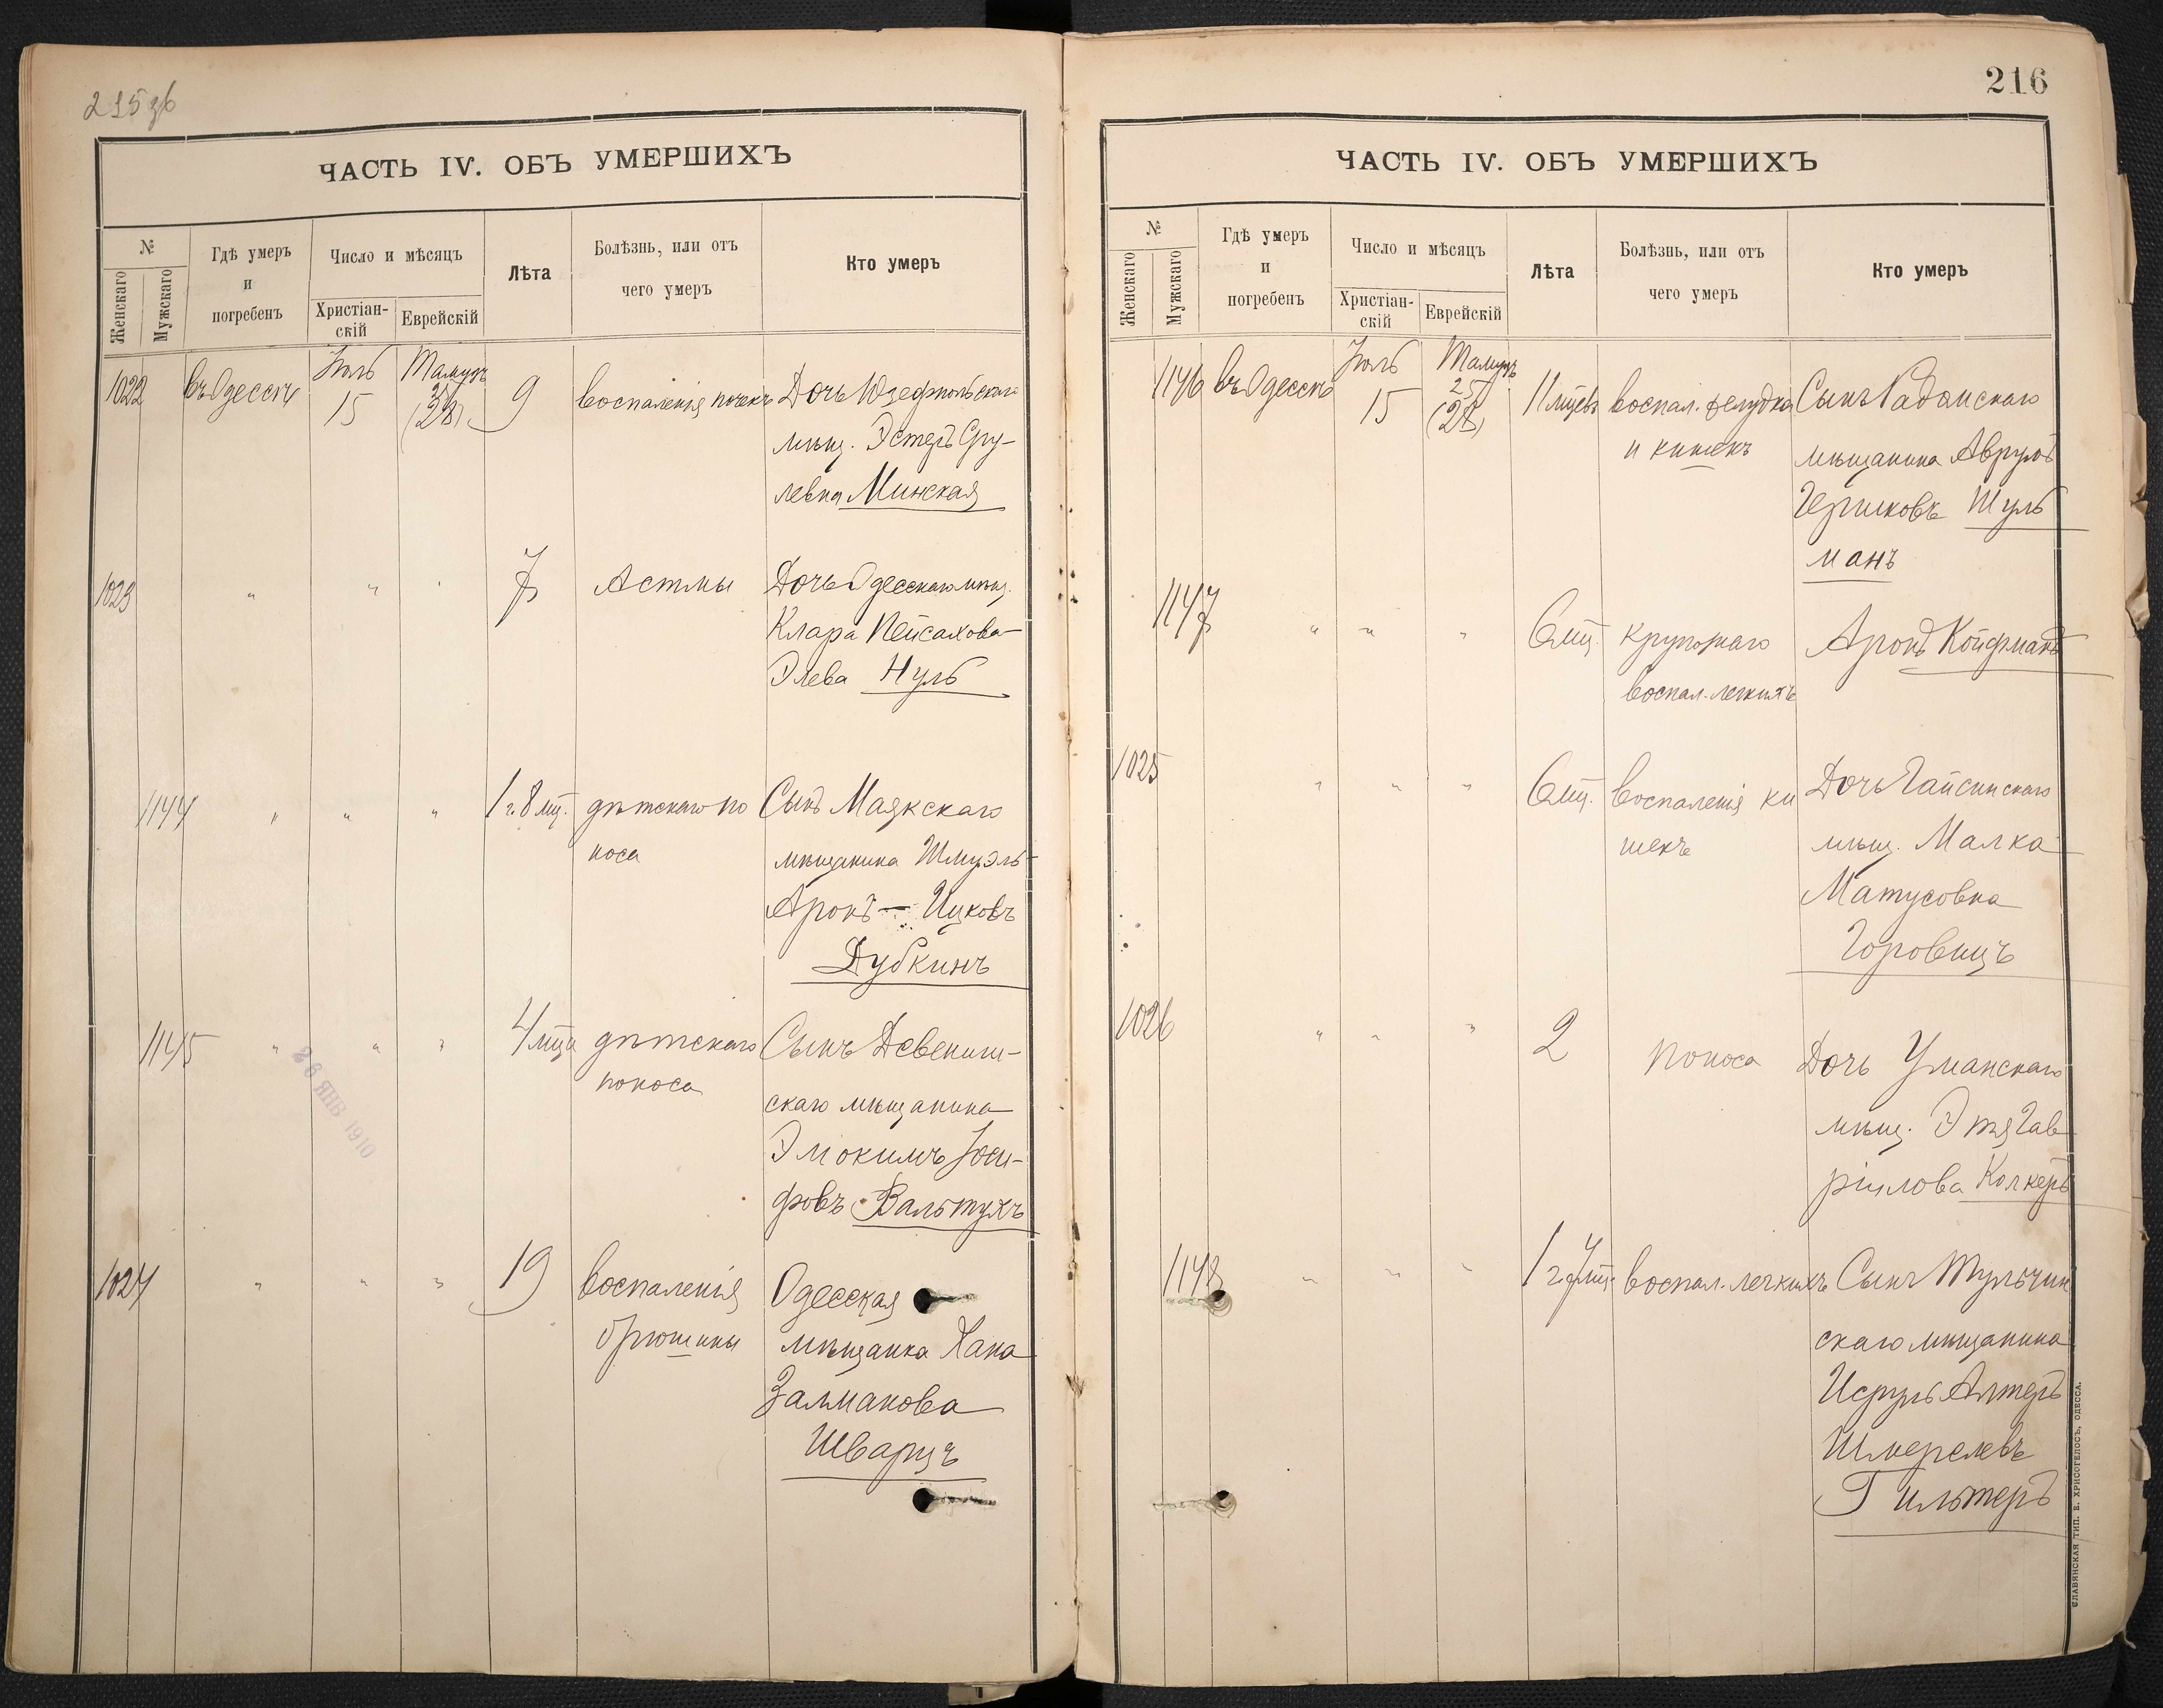 215 зв
ЧАСТЬ IV. ОБЪ УМЕРШИХЪ
№
Женскаго
Мужскаго
Гдѣ умеръ
и
погребенъ
Число и мѣсяцъ
Христіан-
скій
Еврейскій
Лѣта
Болѣзнь, или отъ
чего умеръ
Кто умеръ
1022 въ Одессѣ Іюль 15 Тамузъ 25 (28) 9 воспаленія почекъ Дочь Юзефпольскаго
мѣщ. Эстеръ Сру-
левна Минская
1023 " " " 7 Астмы Дочь Одесскаго мѣщ.
Клара Пейсахова-
Элева Нуль
1144 " " " 1 г. 8 мц. дѣтскаго по Сынъ Маякскаго
носа мѣщанина Шмуэль-
Аронъ — Ицковъ
Дубкинъ
1145 " " " 4 мца дѣтскаго Сынъ Девениш-
поноса скаго мѣщанина
Эліокимъ Іоси-
фовъ Вальтухъ
26 ЯНВ 1910
1024 " " " 19 воспаленія Одесская
брюшины мѣщанка Хана
Залманова
Шварцъ
216
ЧАСТЬ IV. ОБЪ УМЕРШИХЪ
№
Женскаго
Мужскаго
Гдѣ умеръ
и
погребенъ
Число и мѣсяцъ
Христіан-
скій
Еврейскій
Лѣта
Болѣзнь, или отъ
чего умеръ
Кто умеръ
1146 въ Одессѣ Іюль 15 Тамузъ 25 (28) 11 мцевъ воспал. желудка Сынъ Радомскаго
и кишекъ мѣщанина Аврумъ
Гершковъ Шуль
манъ
1147 " " " 6 мц. крупознаго Аронъ Койфманъ
воспал. легкихъ
1025 " " " 6 мц. воспаленія ки Дочь Гайсинскаго
шекъ мѣщ. Малка
Матусовна
Горовицъ
1026 " " " 2 поноса Дочь Уманскаго
мѣщ. Этя Гав
ріилова Колкеръ
1148 " " " 1 г. 7 мц. воспал. легкихъ Сынъ Тульчин
скаго мѣщанина
Исруль Алтеръ
Шмерелевъ
Гильтеръ
СЛАВЯНСКАЯ ТИП. Е. ХРИСОГЕЛОСЪ, ОДЕССА.